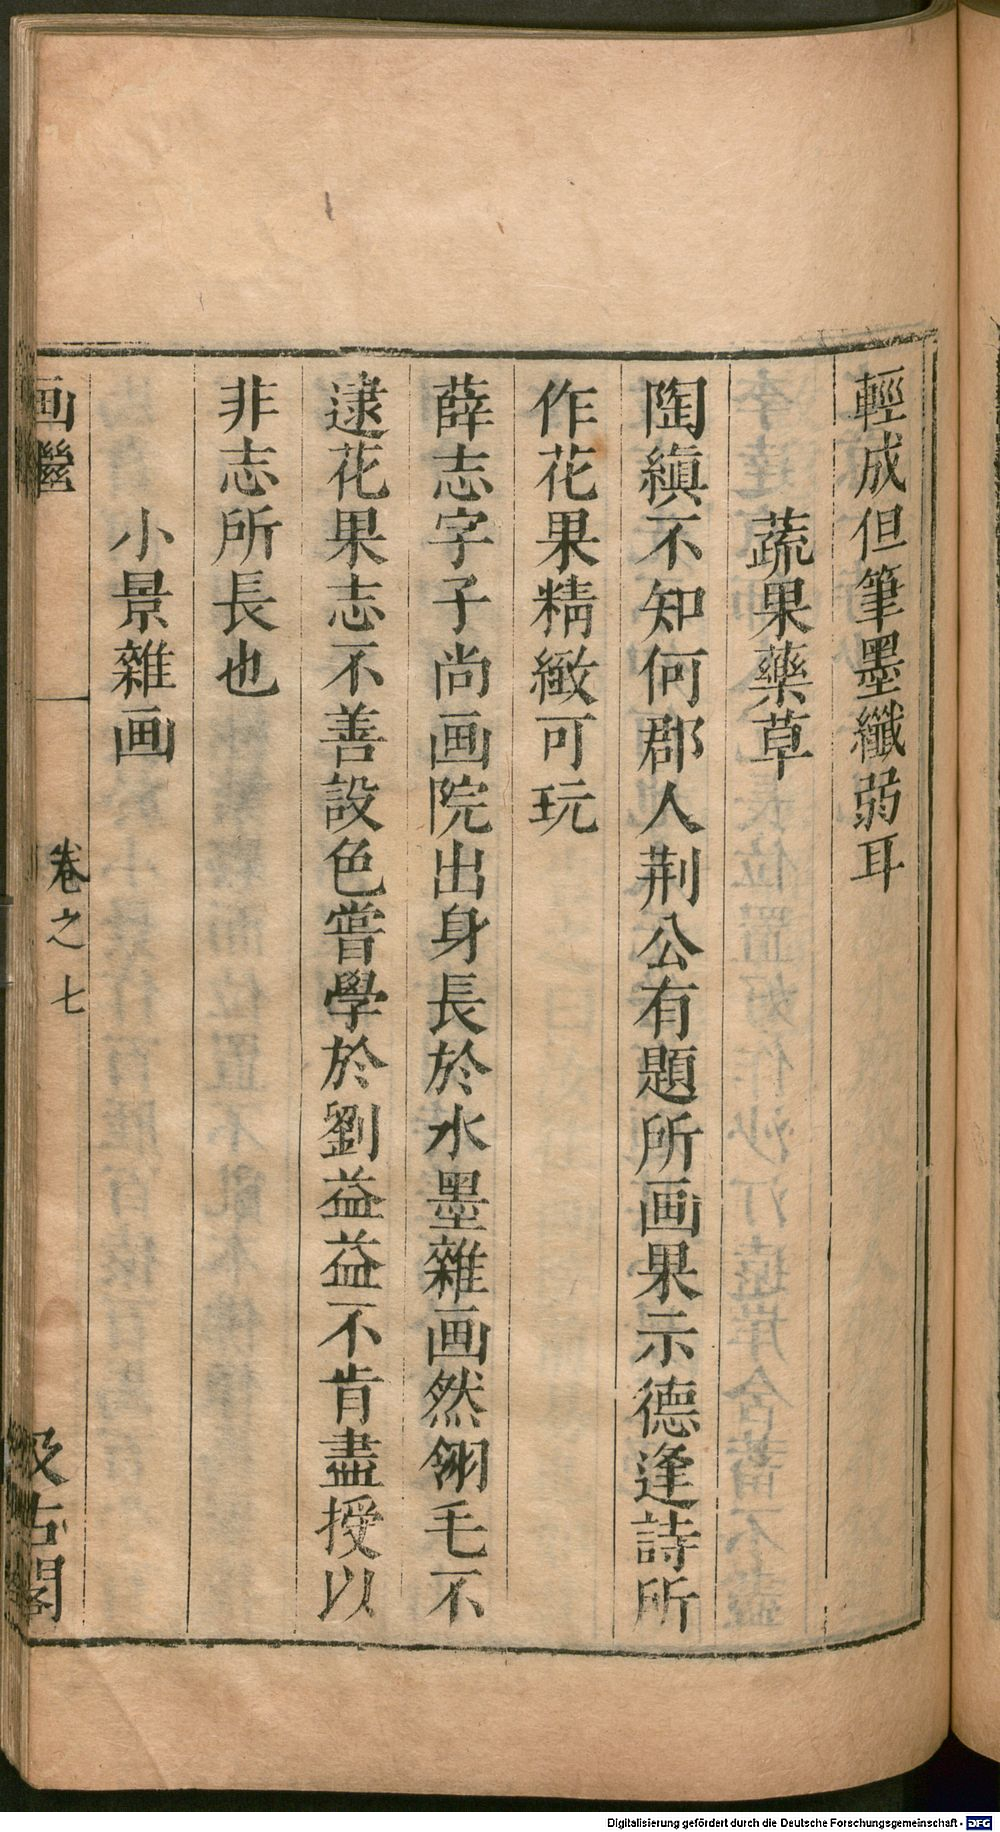 輕成但筆墨纖弱耳
蔬果藥草
陶縝不知何郡人荆公有題所画果示德逢詩所
作花果精緻可玩
薛志字子尚画院出身長於水墨雜画然翎毛不
逮花果志不善設色嘗學於劉益益不肯盡授以
非志所長也
小景雜画
画繼 卷之七 汲古閣
Digitalisierung gefördert durch die Deutsche Forschungsgemeinschaft - DFG